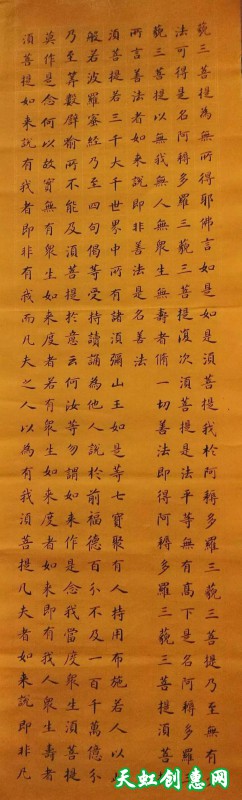 藐三菩提為無所得耶佛言如是如是須菩提我於阿耨多羅三藐三菩提乃至無有
法可得是名阿耨多羅三藐三菩提復次須菩提是法平等無有高下是名阿耨多羅三
藐三菩提以無我無人無眾生無壽者脩一切善法即得阿耨多羅三藐三菩提須菩
所言善法者如來說即非善法是名善法
須菩提若三千大千世界中所有諸須彌山王如是等七寶聚有人持用布施若人以
般若波羅蜜經乃至四句偈等受持讀誦為他人說於前福德百分不及一百千萬億分
乃至算數譬喻所不能及須菩提於意云何汝等勿謂如來作是念我當度眾生須菩提
莫作是念何以故實無有眾生如來度者若有眾生如來度者如來即有我人眾生壽者
須菩提如來說有我者即非有我而凡夫之人以為有我須菩提凡夫者如來說即非凡
天虹创惠网